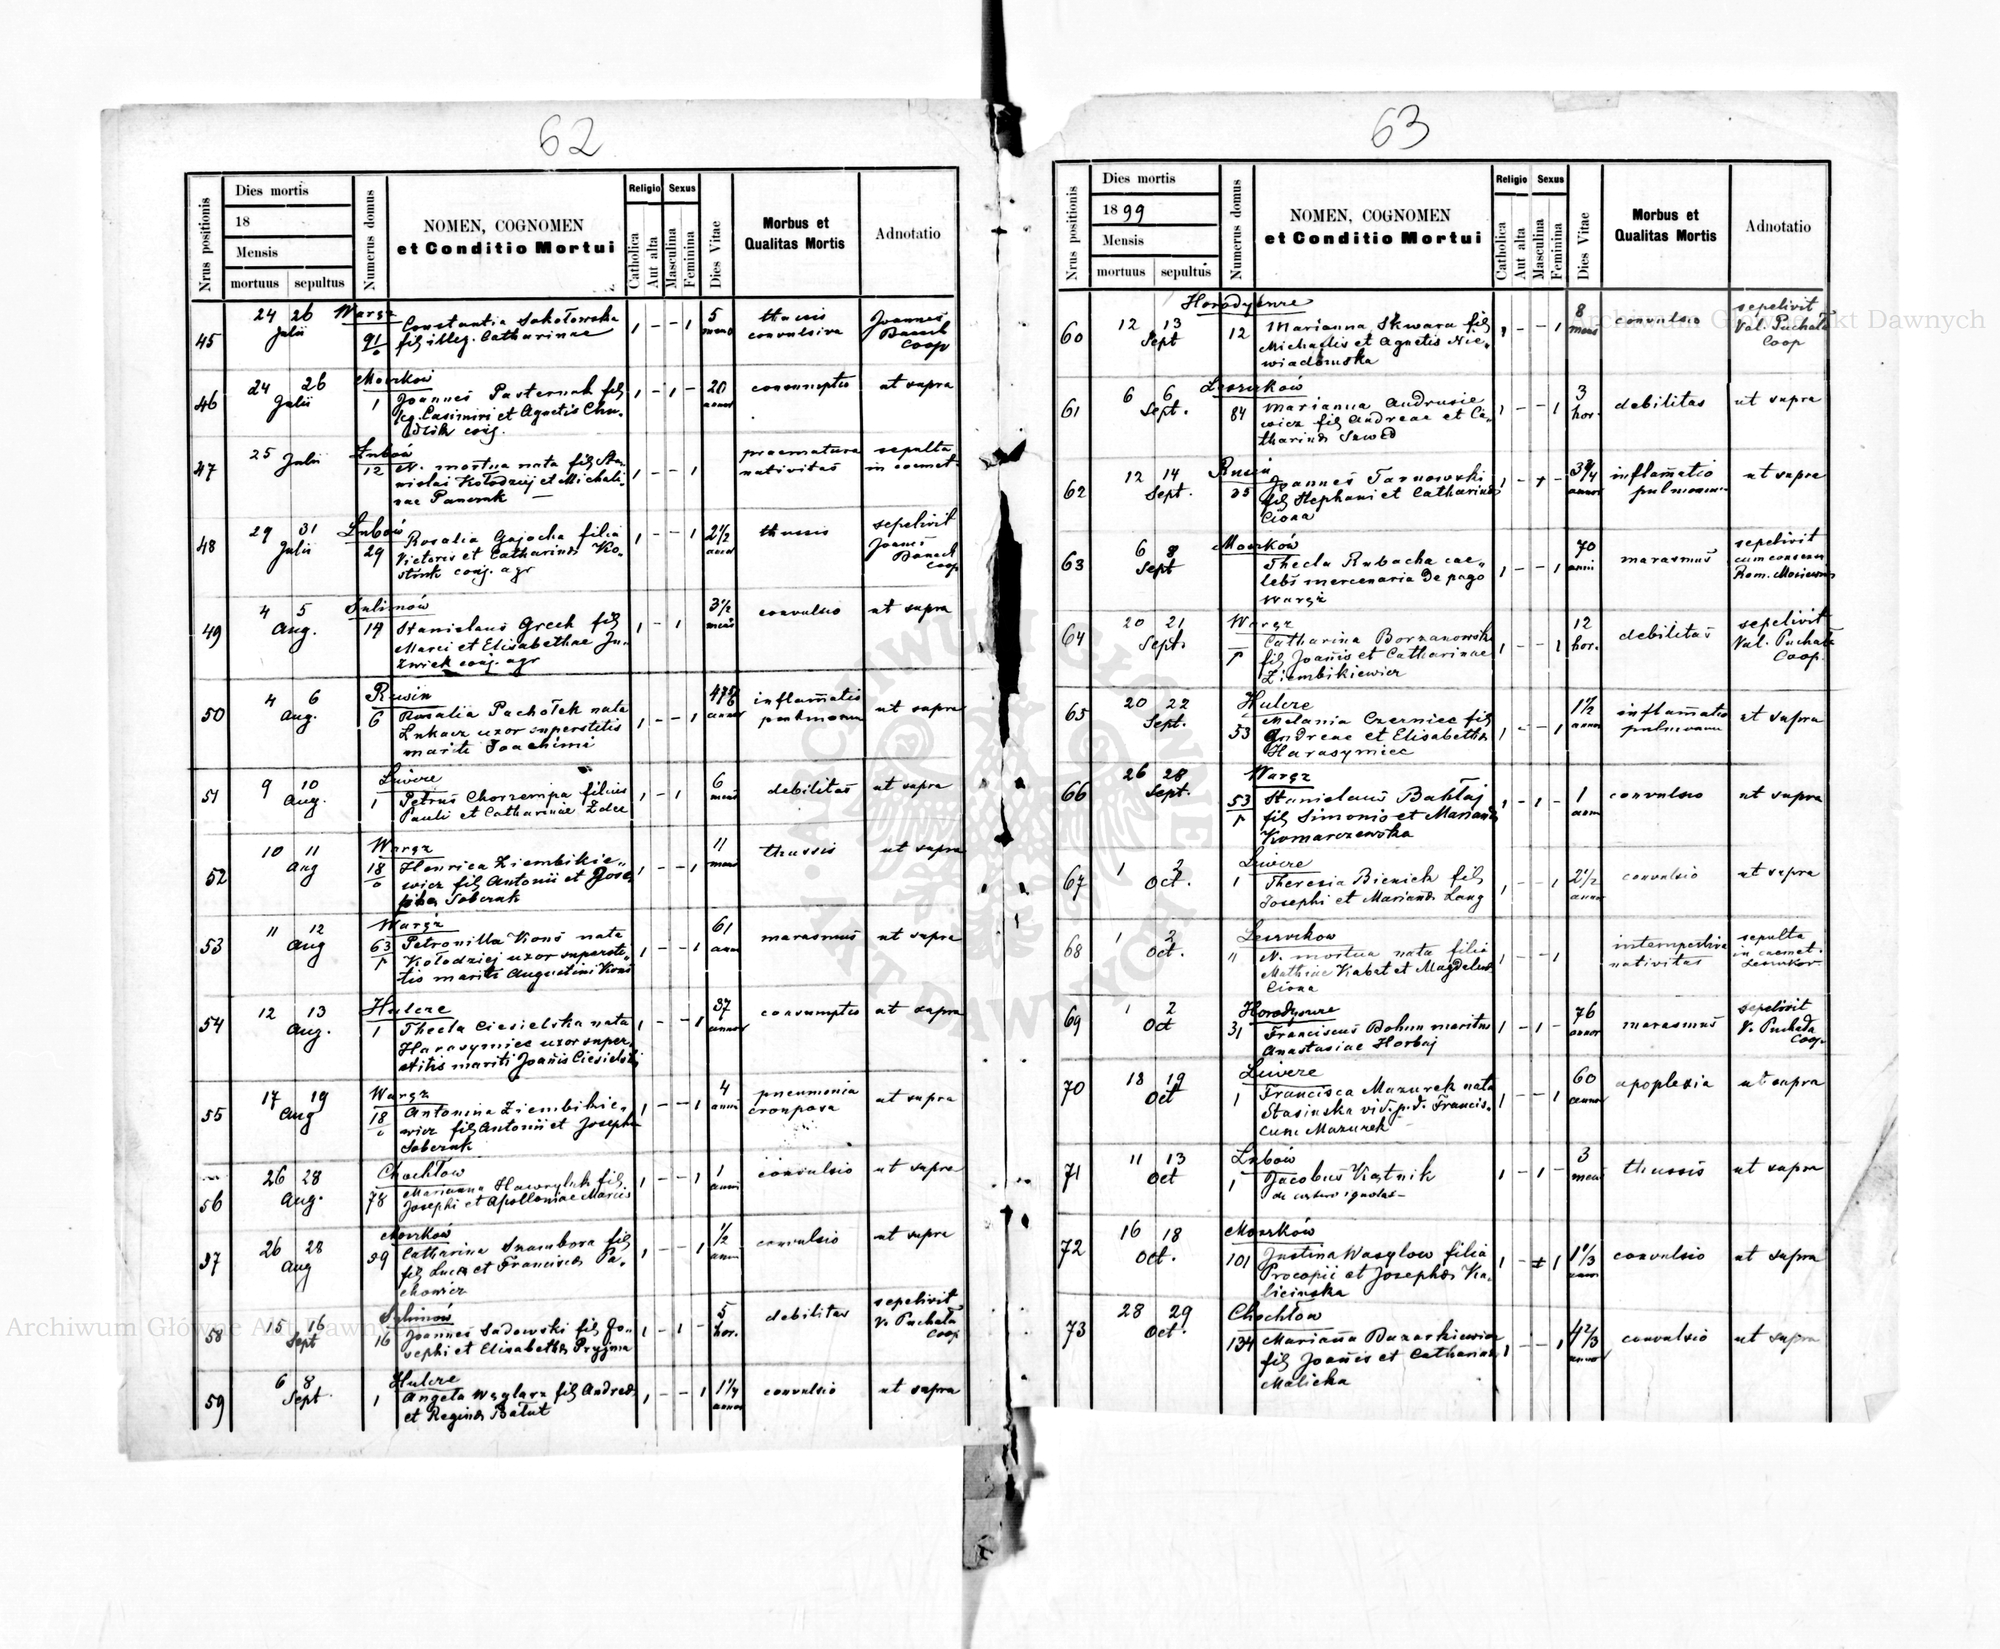 62
Nrus positionis
Dies mortis
18
Mensis
mortuus sepultus
Numerus domus
NOMEN, COGNOMEN
et Conditio Mortui
Religio
Catholica
Aut alta
Sexus
Masculina
Feminina
Dies Vitae
Morbus et
Qualitas Mortis
Adnotatio
45 24 26 Julii Waręż 91
Constantia Sokołowska
filȷ illeg. Catharinae
1 - - 1 5
thussis
convulsiva
Joannes
Banach
Coop
46 24 26 Julii Moszków 1
Joannes Pasternak fil
leg. Casimiri et Agnetis
conj.
1 - 1 - 20 annor
consumptio
ut supra
47 25 Julii Łubów 12
N. mortua nata fil Sta-
nislai Kołodziej et Michali-
nae
1 - - 1
praematura
nativitas
sepulta
in coemet.
48 29 31 Julii Łubów 29
Rosalia Gajocha filia
Victoris et Catharinae Ko-
conj. agr
1 - - 1 2 1/2
thussis
sepelivit
Joannes
Banach
Coop
49 4 5 Aug. Sulimów 14
Stanislaus Greck fil
Marci et Elisabethae Ju-
conj. agr
1 - 1 3 1/2
convulsio
ut supra
50 4 6 Aug. Rusin 6
Rosalia Pachołek nata
uxor superstitis
mariti Joachimi
1 - - 1 annor
inflam̄atio
pulmonum
ut supra
51 9 10 Aug. 1
Petrus Chorzempa filius
Pauli et Catharinae
1 - 1 6
debilitas
ut supra
52 10 11 Aug Waręż 18
Henrica Ziembikie-
wicz fil Antonii et Jose-
phae Sobczak
1 - - 1 11
thussis
ut supra
53 11 12 Aug Waręż 63
Petronilla Koń nata
Kołodziej uxor supersti-
tis mariti Augustini
1 - - 1 61
marasmus
ut supra
54 12 13 Aug. Hulcze 1
Thecla Ciesielska nata
Harasymiec uxor super-
stitis mariti Joan̄is Ciesielski
1 - - 1 37 annor
consumptio
ut supra
55 17 19 Aug Waręż 18
Antonina Ziembikie-
wicz fil Antonii et Josephae
Sobczak
1 - - 1 4 anni
pneumonia
crouposa
ut supra
56 26 28 Aug. Chochłów 78
Marianna Hawryluk fil
Josephi et Apolloniae
1 - - 1 1
convulsio
ut supra
57 26 28 Aug Moszków 39
Catharina Szambora fil
fil Lucae et Franciscae Pa-
chowicz
1 - - 1 1/2
convulsio
ut supra
58 15 16 Sept Sulimów 16
Joannes Sadowski fil Jo-
sephi et Elisabethae Prygma
1 - 1 - 5 hor.
debilitas
sepelivit
V. Puchała
Coop
59 6 8 Sept. Hulcze 1
Angela Węglarz fil Andreae
et Reginae Bałut
1 - - 1 1 1/4 annor
convulsio
ut supra
63
Nrus positionis
Dies mortis
1899
Mensis
mortuus sepultus
Numerus domus
NOMEN, COGNOMEN
et Conditio Mortui
Religio
Catholica
Aut alta
Sexus
Masculina
Feminina
Dies Vitae
Morbus et
Qualitas Mortis
Adnotatio
60 12 13 Sept 12
Marianna Skwara fil
Michaelis et Agnetis Nie-
wiadomska
1 - - 1 8
convulsio
sepelivit
Val. Puchała
Coop
61 6 6 Sept. Leszczków 84
Marianna Andrusie
wicz fil Andreae et Ca-
tharinae Szwed
1 - - 1 3 hor.
debilitas
ut supra
62 12 14 Sept. Rusin 25
Joannes Tarnowski
fil Stephani et Catharinae
Ciona
1 - + - 3 3/4 annor
inflam̄atio
pulmonum
ut supra
63 6 8 Sept Moszków
Thecla Rubacha cae-
lebs mercenaria de pago
Waręż
1 - - 1 70 anni
marasmus
sepelivit
cum consensu
Rom.
64 20 21 Sept. Waręż
Catharina Borzanowska
fil Joan̄is et Catharinae
Ziembikiewicz
1 - - 1 12 hor.
debilitas
sepelivit
Val. Puchała
Coop.
65 20 22 Sept. Hulcze 53
Melania Czerniec fil
Andreae et Elisabethae
Harasymiec
1 - - 1 1 1/2 annor
inflam̄atio
pulmonum
ut supra
66 26 28 Sept. Waręż 53
Stanislaus Bakłaj
fil Simonis et Mariannae
Komarczewska
1 - 1 - 1
convulsio
ut supra
67 1 2 Oct. 1
Theresia Bieniek fil
Josephi et Mariannae Lang
1 - - 1 2 1/2 annor
convulsio
ut supra
68 1 2 Oct. Leszczkow "
N. mortua nata filia
Mathiae Kabat et Magdalenae
Ciona
1 - - 1
intempestiva
nativitas
sepulta
in coemet.
69 1 2 Oct 31
Franciscus Bohun maritus
Anastasiae Horbaj
1 - 1 - 76 annor
marasmus
sepelivit
V. Puchała
Coop
70 18 19 Oct 1
Francisca Mazurek nata
Stasinska vid. p. d. Francis-
cum Mazurek
1 - - 1 60 annor
apoplexia
ut supra
71 11 13 Oct Łubów 1
Jacobus Kątnik
de
1 - 1 - 3
thussis
ut supra
72 16 18 Oct. Moszków 101
Justina Wasylow filia
Procopii et Josephae Ka-
licinska
1 - 1 1 1/3
convulsio
ut supra
73 28 29 Oct. Chochłow 134
Marian̄a Bazarkiewicz
fil Joan̄is et Catharinae
Malicka
1 - - 1 4 2/3 annor
convulsio
ut supra
Archiwum Główne Akt Dawnych
Archiwum Główne Akt Dawnych
ARCHIWUM GŁÓWNE AKT DAWNYCH